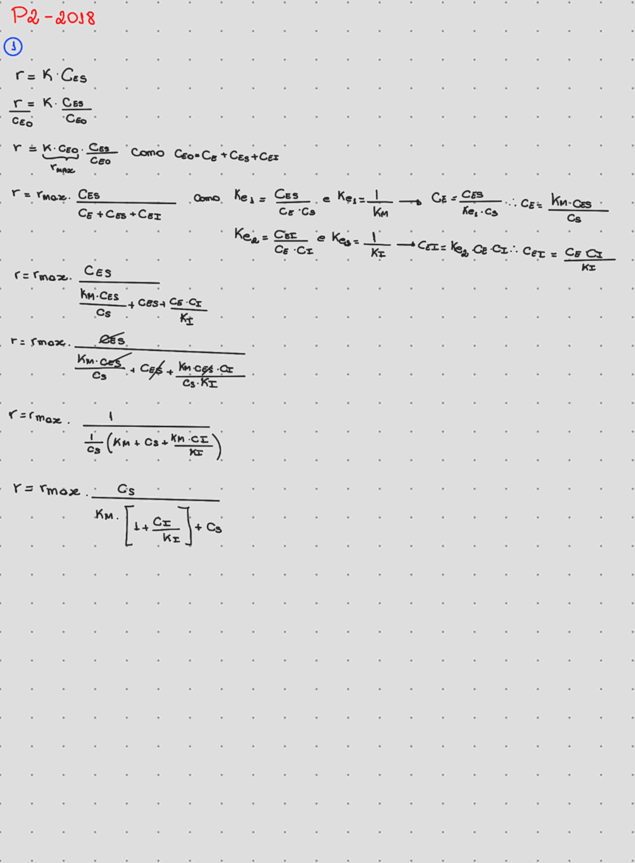 P2-2018
1
r = K · CES
r/CEO = K · CES/CEO
r = K·CEO · CES/CEO Como CEO = CE + CES + CEI
rmax
r = rmax · CES/(CE + CES + CEI) como Ke1 = CES/(CE·CS) e Ke1 = 1/KM → CE = CES/(Ke1·CS) ∴ CE = KM·CES/CS
Ke2 = CEI/(CE·CI) e Ke2 = 1/KI → CEI = Ke2·CE·CI ∴ CEI = CE·CI/KI
r = rmax · CES/(KM·CES/CS + CES + CE·CI/KI)
r = rmax · CES/(KM·CES/CS + CES + KM·CES·CI/(CS·KI))
r = rmax · 1/(1/CS (KM + CS + KM·CI/KI))
r = rmax · CS/(KM · [1 + CI/KI] + CS)